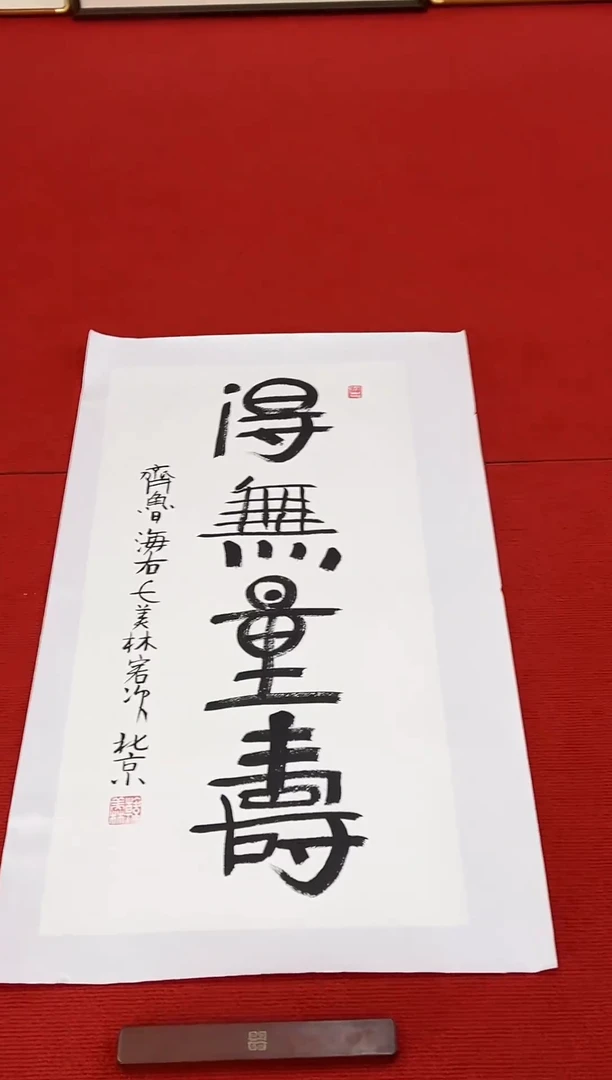 得無量壽
齊魯海右美林客次北京